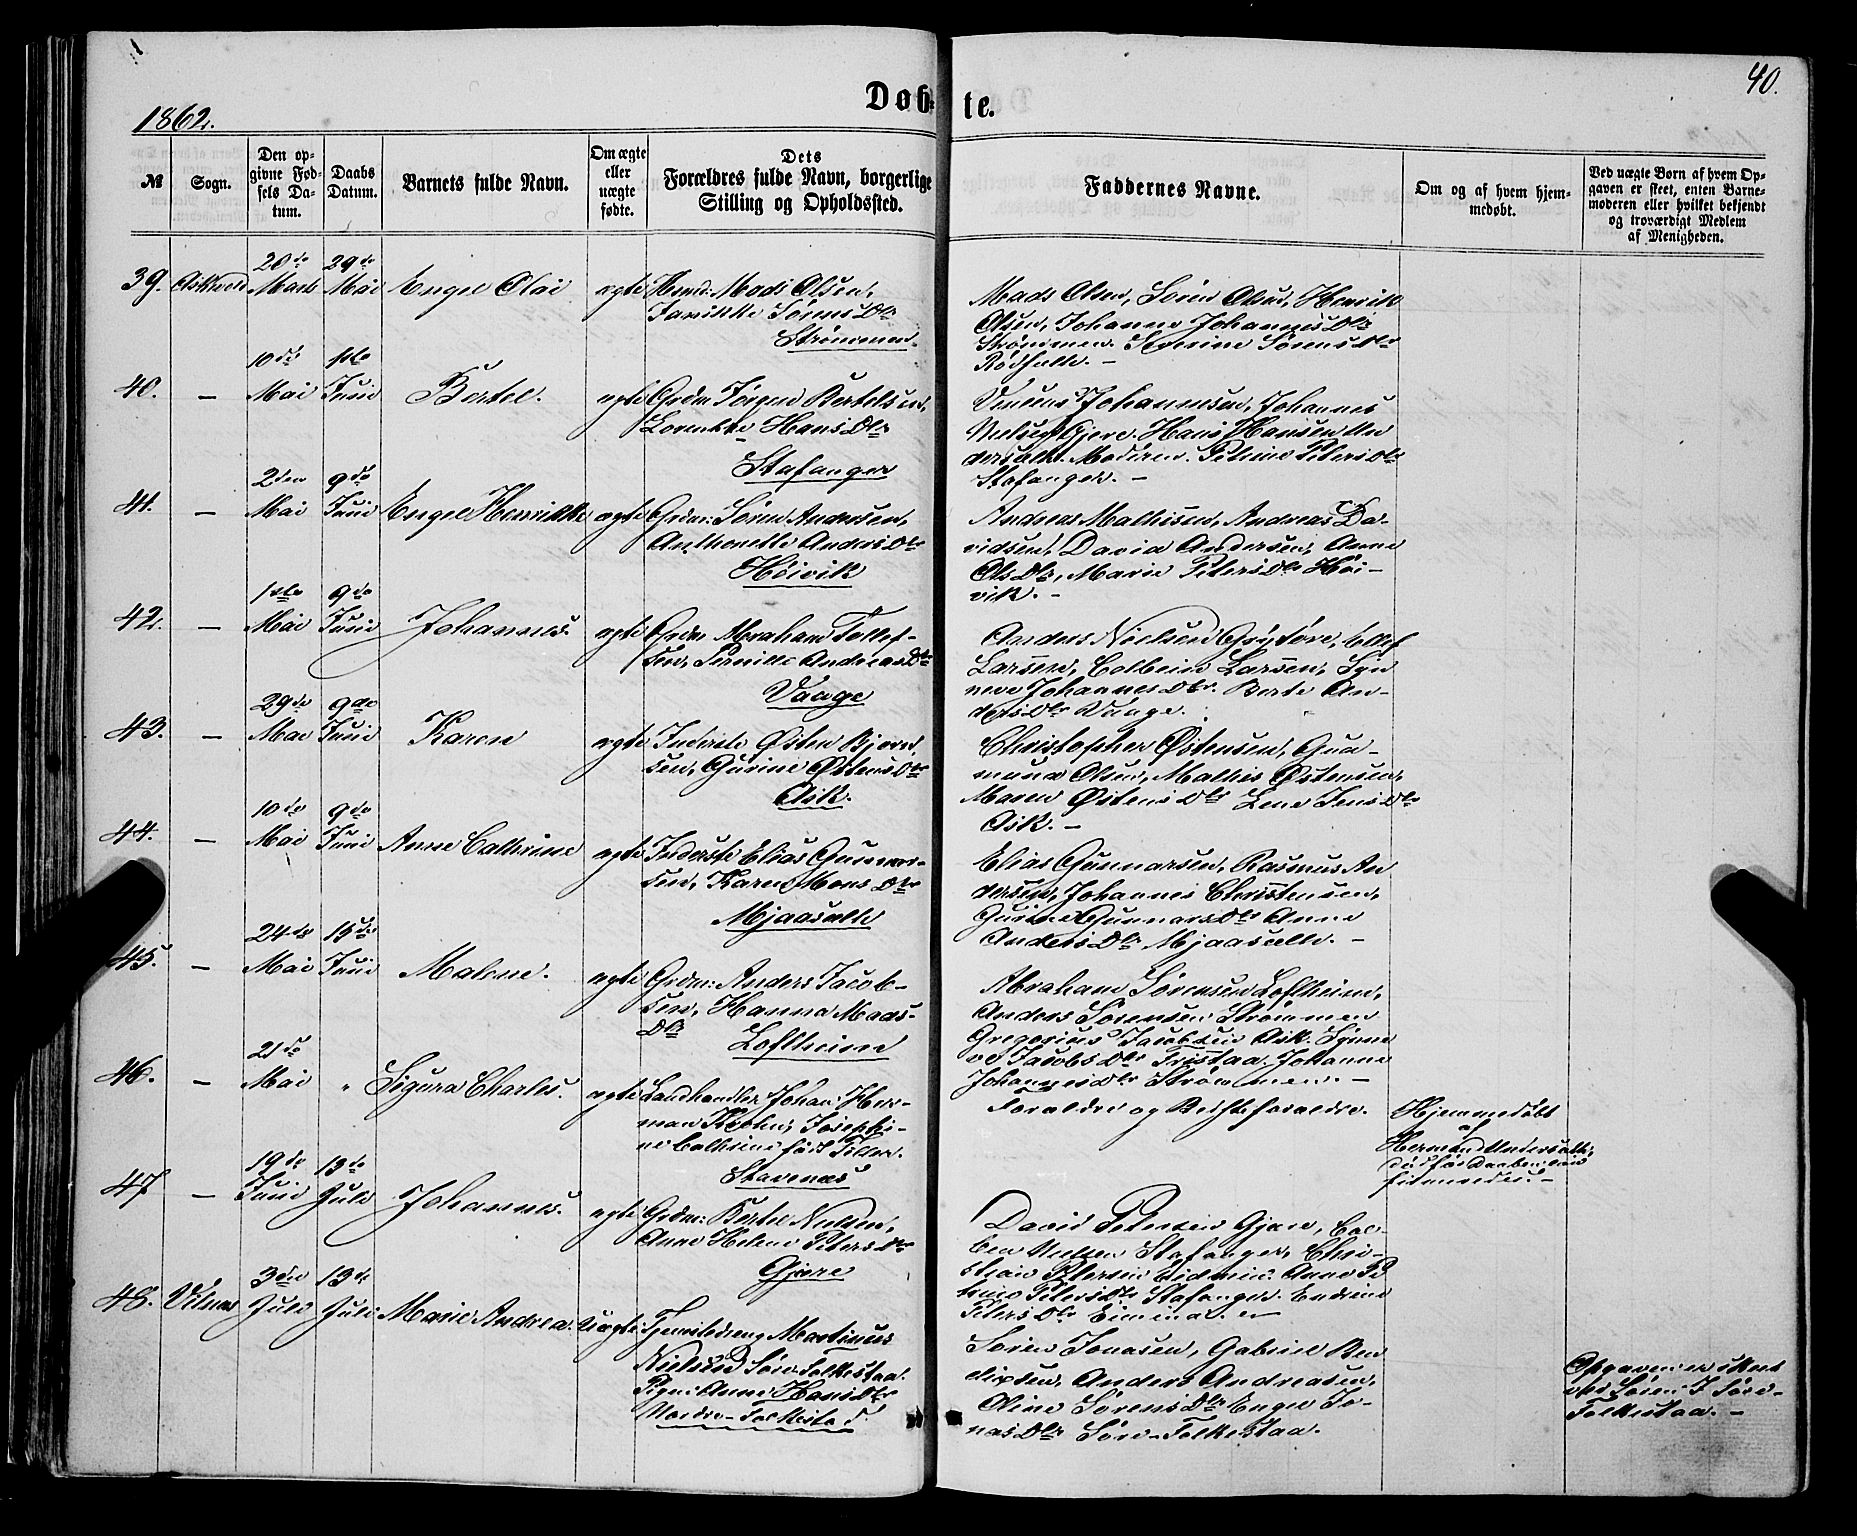 40.
1862.
Døb-
te.
№
Sogn.
Den op-
givne Fød-
sels Da-
tum.
Daabs
Datum.
Barnets fulde Navn.
Om ægte
eller
uægte
fødte.
Dets
Forældres fulde Navn, borgerlige
Stilling og Opholdssted.
Faddernes Navne.
Om og af hvem hjem-
medøbt.
Ved uægte Børn af hvem Op-
gaven er skeet, enten Barne-
moderen eller hvilket bekjendt
og troværdigt Medlem
af Menigheden.
20de 29de
39. Askvold Marts Mai Engel Olai ægte Mads Olsen,
Sørens Dtr
Strømmen.
Mads Olsen, Søren Olsen, Henrik
Olsen, Johanne Johannes Dtr
Strømmen. Severine Sørens Dtr
10de 1ste
40. — Mai Juni Bertel. ægte Grdm: Jørgen Bertelsen,
Hans Dtr
Stafanger
Johannesen, Johannes
Nielsen Gjere. Hans Hansen
Moderen. Peters Dtr
Stafanger. —
2den 9de
41. — Mai Juni Engel Henrikke ægte Grdm: Søren Andersen,
Anthonette Anders Dtr
Høivik
Andreas Mathisen, Andreas Da-
vidsen, David Andersen, Anne
Ols Dtr, Marie Peters Dtr Høi-
vik. —
1ste 9de
42. — Mai Juni Johannes. ægte Grdm: Abraham Tollef-
sen, Pernille Andreas Dtr
Vaage
Anders Nielsen Grytøre, Ellef
Larsen, Colbein Larsen, Syn
neve Johannes Dtr. Berte An-
ders Dtr Vaage.
29de 9de
43. — Mai Juni Karen ægte Inderste Østen
sen, Gurine Østens Dtr
Ask.
Christopher Østensen, Gud-
mund Olsen, Mathis Østensen,
Maren Østens Dtr Lene Jens Dtr
Ask. —
10de 9de
44. — Mai Juni Anne Cathrine ægte Inderste Elias Gunnar-
sen, Karen Mons Dtr
Mjaasætte
Elias Gunnarsen, Rasmus An
dersen, Johannes Christensen,
Gurine Gunnars Dtr Anne
Anders Dtr Mjaasætte. —
24de 15de
45. — Mai Juni Malene. ægte Grdm: Anders Jacob-
sen, Hanna Mads-
Dtr
Loftheim
Abraham Sørensen Loftheim,
Anders Sørensen Strømmen
Gregorius Jacobsen Ask. Synne
ve Jacobs Dtr Johanne
Johannes Dtr Strømmen. —
21de
46. — Mai " Sigurd Charles. ægte Landhandler Johan Her-
man Josephi-
ne Cathrine født
Stavenæs
Forældre og Bedsteforældre.
Hjemmedøbt
af
Herman
19de 13de
47 — Juni Juli Johannes. ægte Grdm: Bertel Nielsen,
Anne Helene Peters Dtr
Gjøre
David Petersen Gjøre,
Nielsen Stafanger, Chri-
stian Petersen Anne
Peters Dtr Stafanger.
Peters Dtr
3die 13de
48. Vilnæs Juli Juli Marie Andrea. uægte Tjenestedreng Martinus
Nielsen Søre Folkestad.
Pige: Anne Hans Dtr
Nordre-Folkestad.
Søren Jonasen, Gabriel Ben
dixsen, Anders Andreasen,
Oline Sørens Dtr Engel Jo-
nas Dtr Søre-Folkestad.
Opgaven er skeet
ved Søren J. Søre-
Folkestad. —